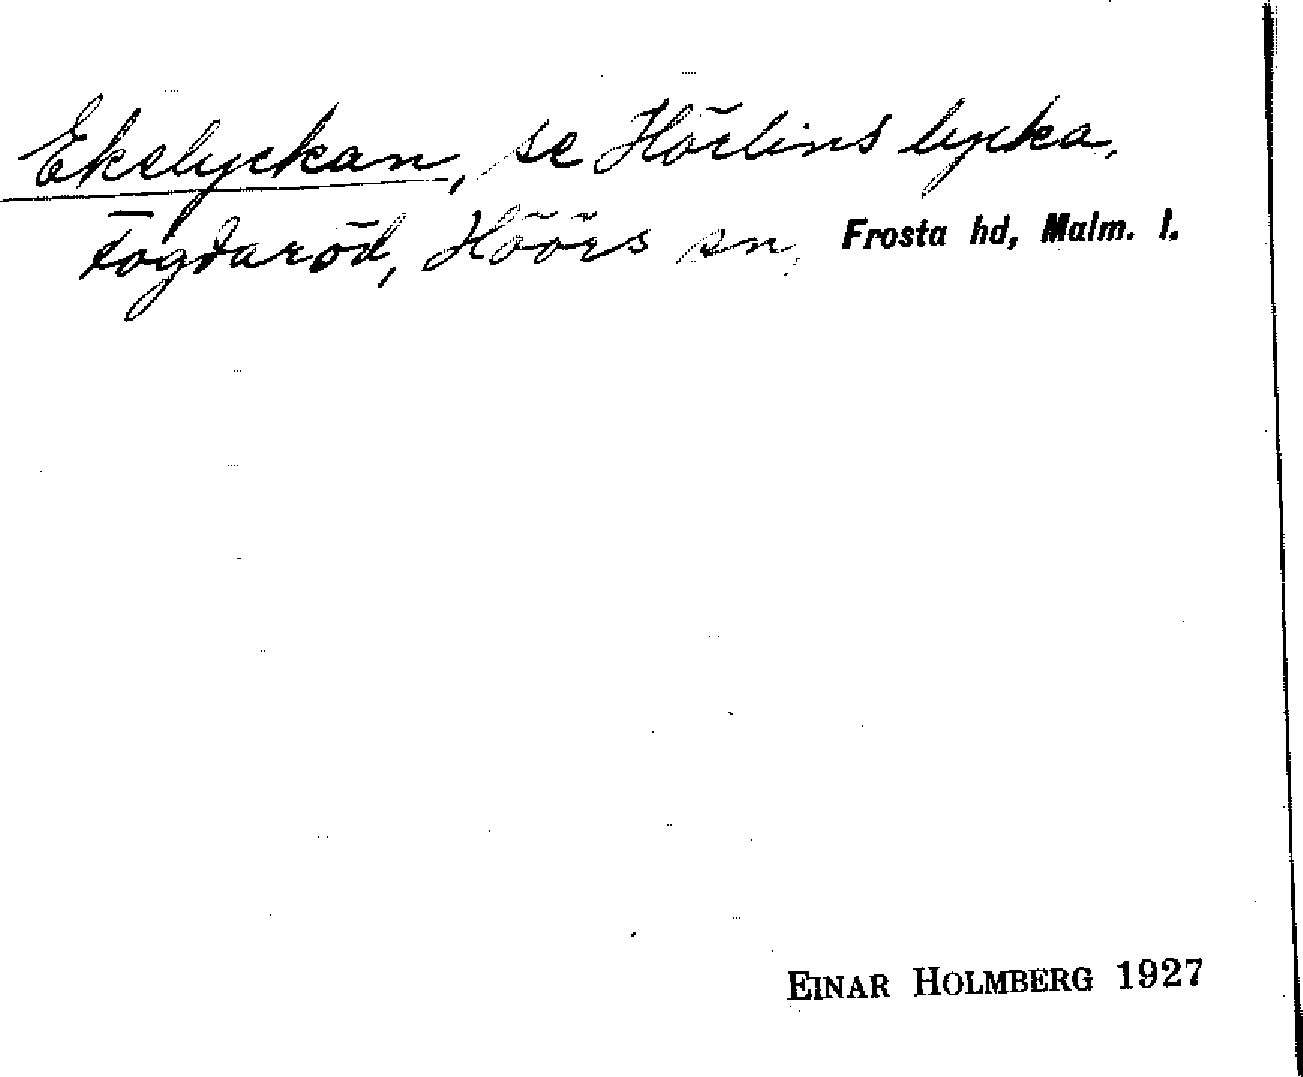 Ekelyckan, se Hörlins lycka,
Fogdaröd, Höörs sn, Frosta hd, Malm. l.
EINAR HOLMBERG 1927